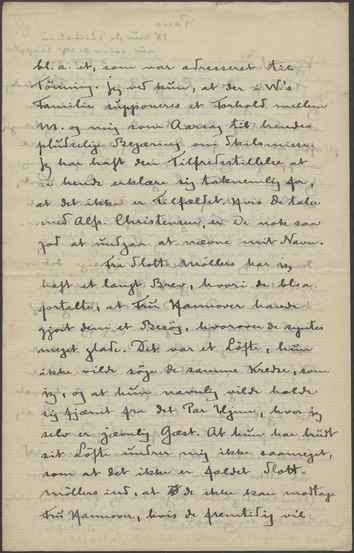 bl. a. et, som var adresseret til
Tönning. Jeg ved kun, at der i W's
Familie supponeres et Forhold mellem
M. og mig som Aarsag til hendes
pludselige Begæring om Skilsmisse.
Jeg har haft den Tilfredsstillelse at
hende erklære sig taknemlig for,
at det ikke er Tilfældet. Hvis De taler
med Alfr. Christensen, er De nok saa
god at undgaa at nævne mit Navn.
Fra Slott-Møllers har jeg
haft et langt Brev, hvori de bl. a.
fortalte, at Fru Hannover havde
gjort dem et Besøg, hvorover de syntes
meget glade. Det var et Löfte, hun
ikke vilde söge de samme Kredse, som
jeg, og at hun navnlig vilde holde
sig fjærnt fra det Par Hjem, hvor jeg
selv er jævnlig Gæst. At hun har brudt
sit Löfte undrer mig ikke saameget,
som at det ikke er faldet Slott-
Møllers ind, at de ikke kan modtage
Fru Hannover, hvis de fremtidig vil